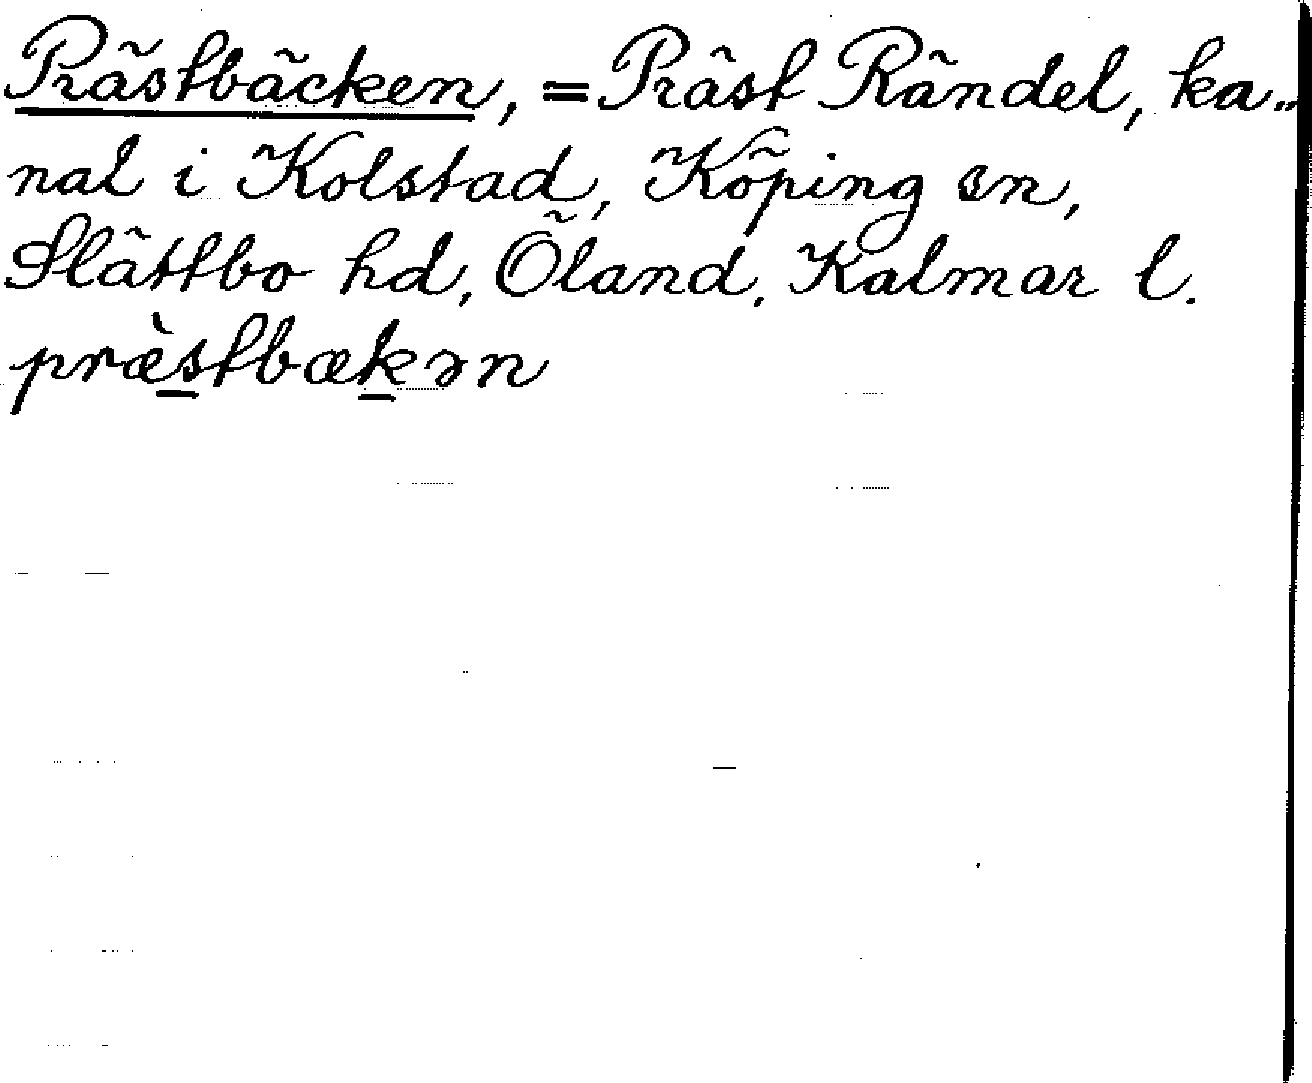 Prästbäcken, = Präst Rändel, ka-
nal i Kolstad, Köping sn,
Slättbo hd, Öland, Kalmar l.
præ̀s̲tbæk̲ən